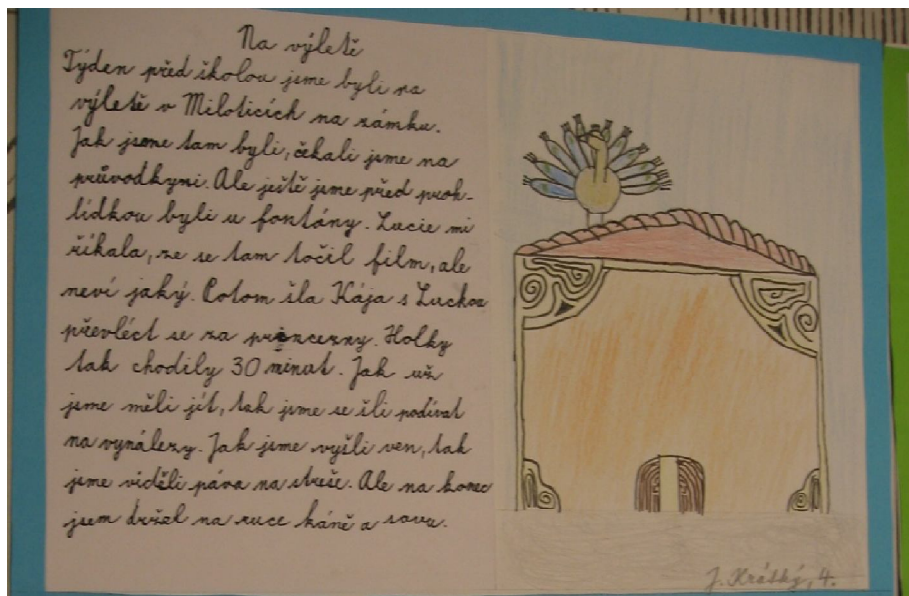 Na výletě
Týden před školou jsme byli na
výletě v Miloticích na zámku.
Jak jsme tam byli, čekali jsme na
průvodkyni. Ale ještě jsme před proh-
lídkou byli u fontány. Lucie mi
říkala, ze se tam točil film, ale
neví jaký. Potom šla Kája s Luckou
převléct se za princezny. Holky
tak chodily 30 minut. Jak už
jsme měli jít, tak jsme se šli podívat
na vynálezy. Jak jsme vyšli ven, tak
jsme viděli páva na střeše. Ale na konec
jsem držel na ruce káně a sovu.
J. Krátký, 4.